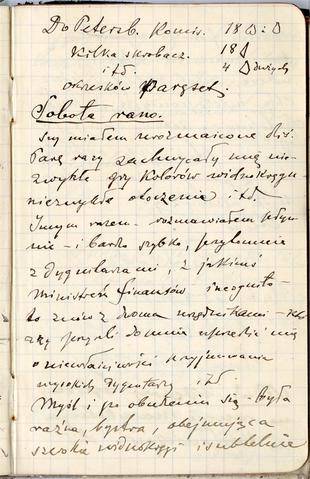 Do Petersb. Komis. 18 Δ : Δ
Kilka skrobacz. 18 Δ
itd. 4 Δ
okresków paręset.
Sobota rano.
Sny miałem urozmaicone dziś.
Parę razy zachwycały mię nie-
zwykłe gry kolorów widnokręgu
niezwykłe otoczenie itd.
Innym razem – rozmawiałem płyn-
nie – i bardzo szybko, przytomnie
z dygnitarzami, z jakimś
Ministrem finansów incognito –
to znów z dwoma urzędnikami –
przyszli do mnie uprzedzić mię
o niewłaściwości przyjmowania
wysokich dygnitarzy itd.
Myśl i po obudzeniu się – była
raźna, bystra, obejmująca
szerokie widnokręgi i subtelnie